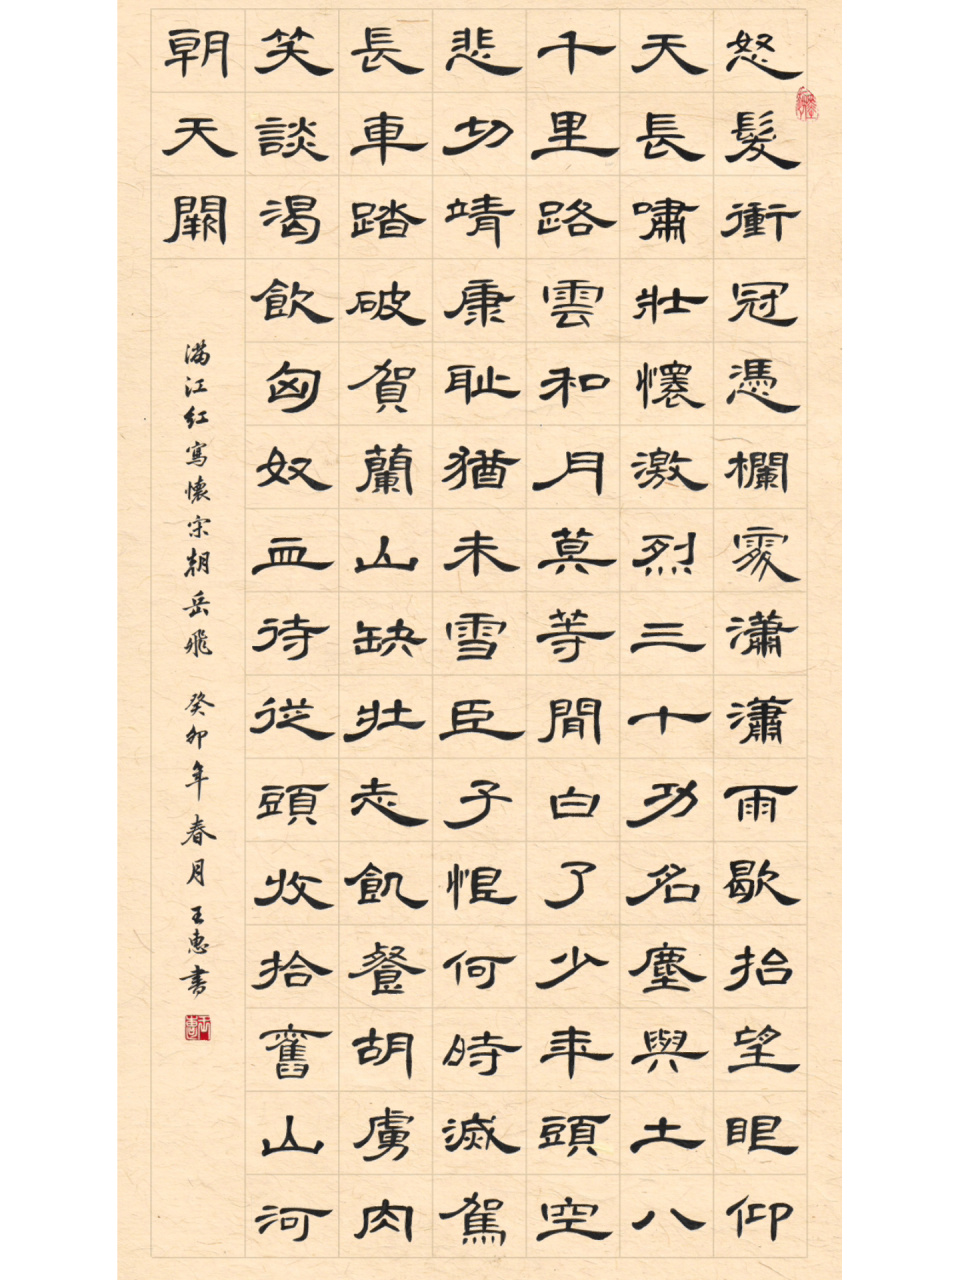 怒髮衝冠憑欄處瀟瀟雨歇抬望眼仰
天長嘯壯懷激烈三十功名塵與土八
千里路雲和月莫等閒白了少年頭空
悲切靖康耻猶未雪臣子恨何時滅駕
長車踏破賀蘭山缺壯志飢餐胡虜肉
笑談渴飲匈奴血待從頭收拾舊山河
朝天闕
滿江紅寫懷宋朝岳飛 癸卯年春月王惠書